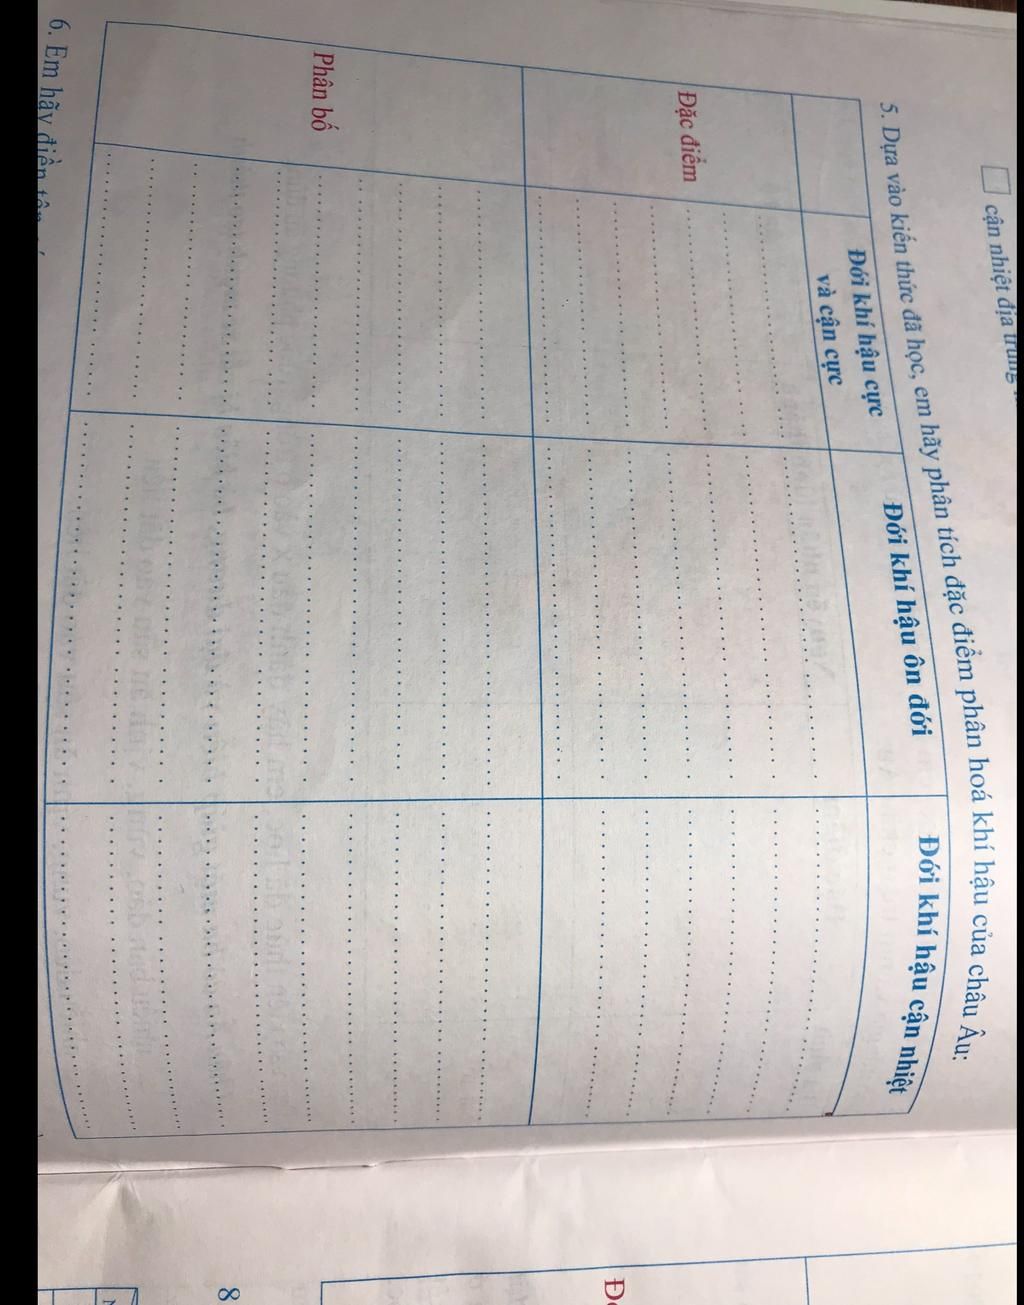 cận nhiệt địa trung
5. Dựa vào kiến thức đã học, em hãy phân tích đặc điểm phân hoá khí hậu của châu Âu:
Đới khí hậu cực
và cận cực
Đới khí hậu ôn đới
Đới khí hậu cận nhiệt
Đặc điểm
Phân bố
6. Em hãy điền tên
8